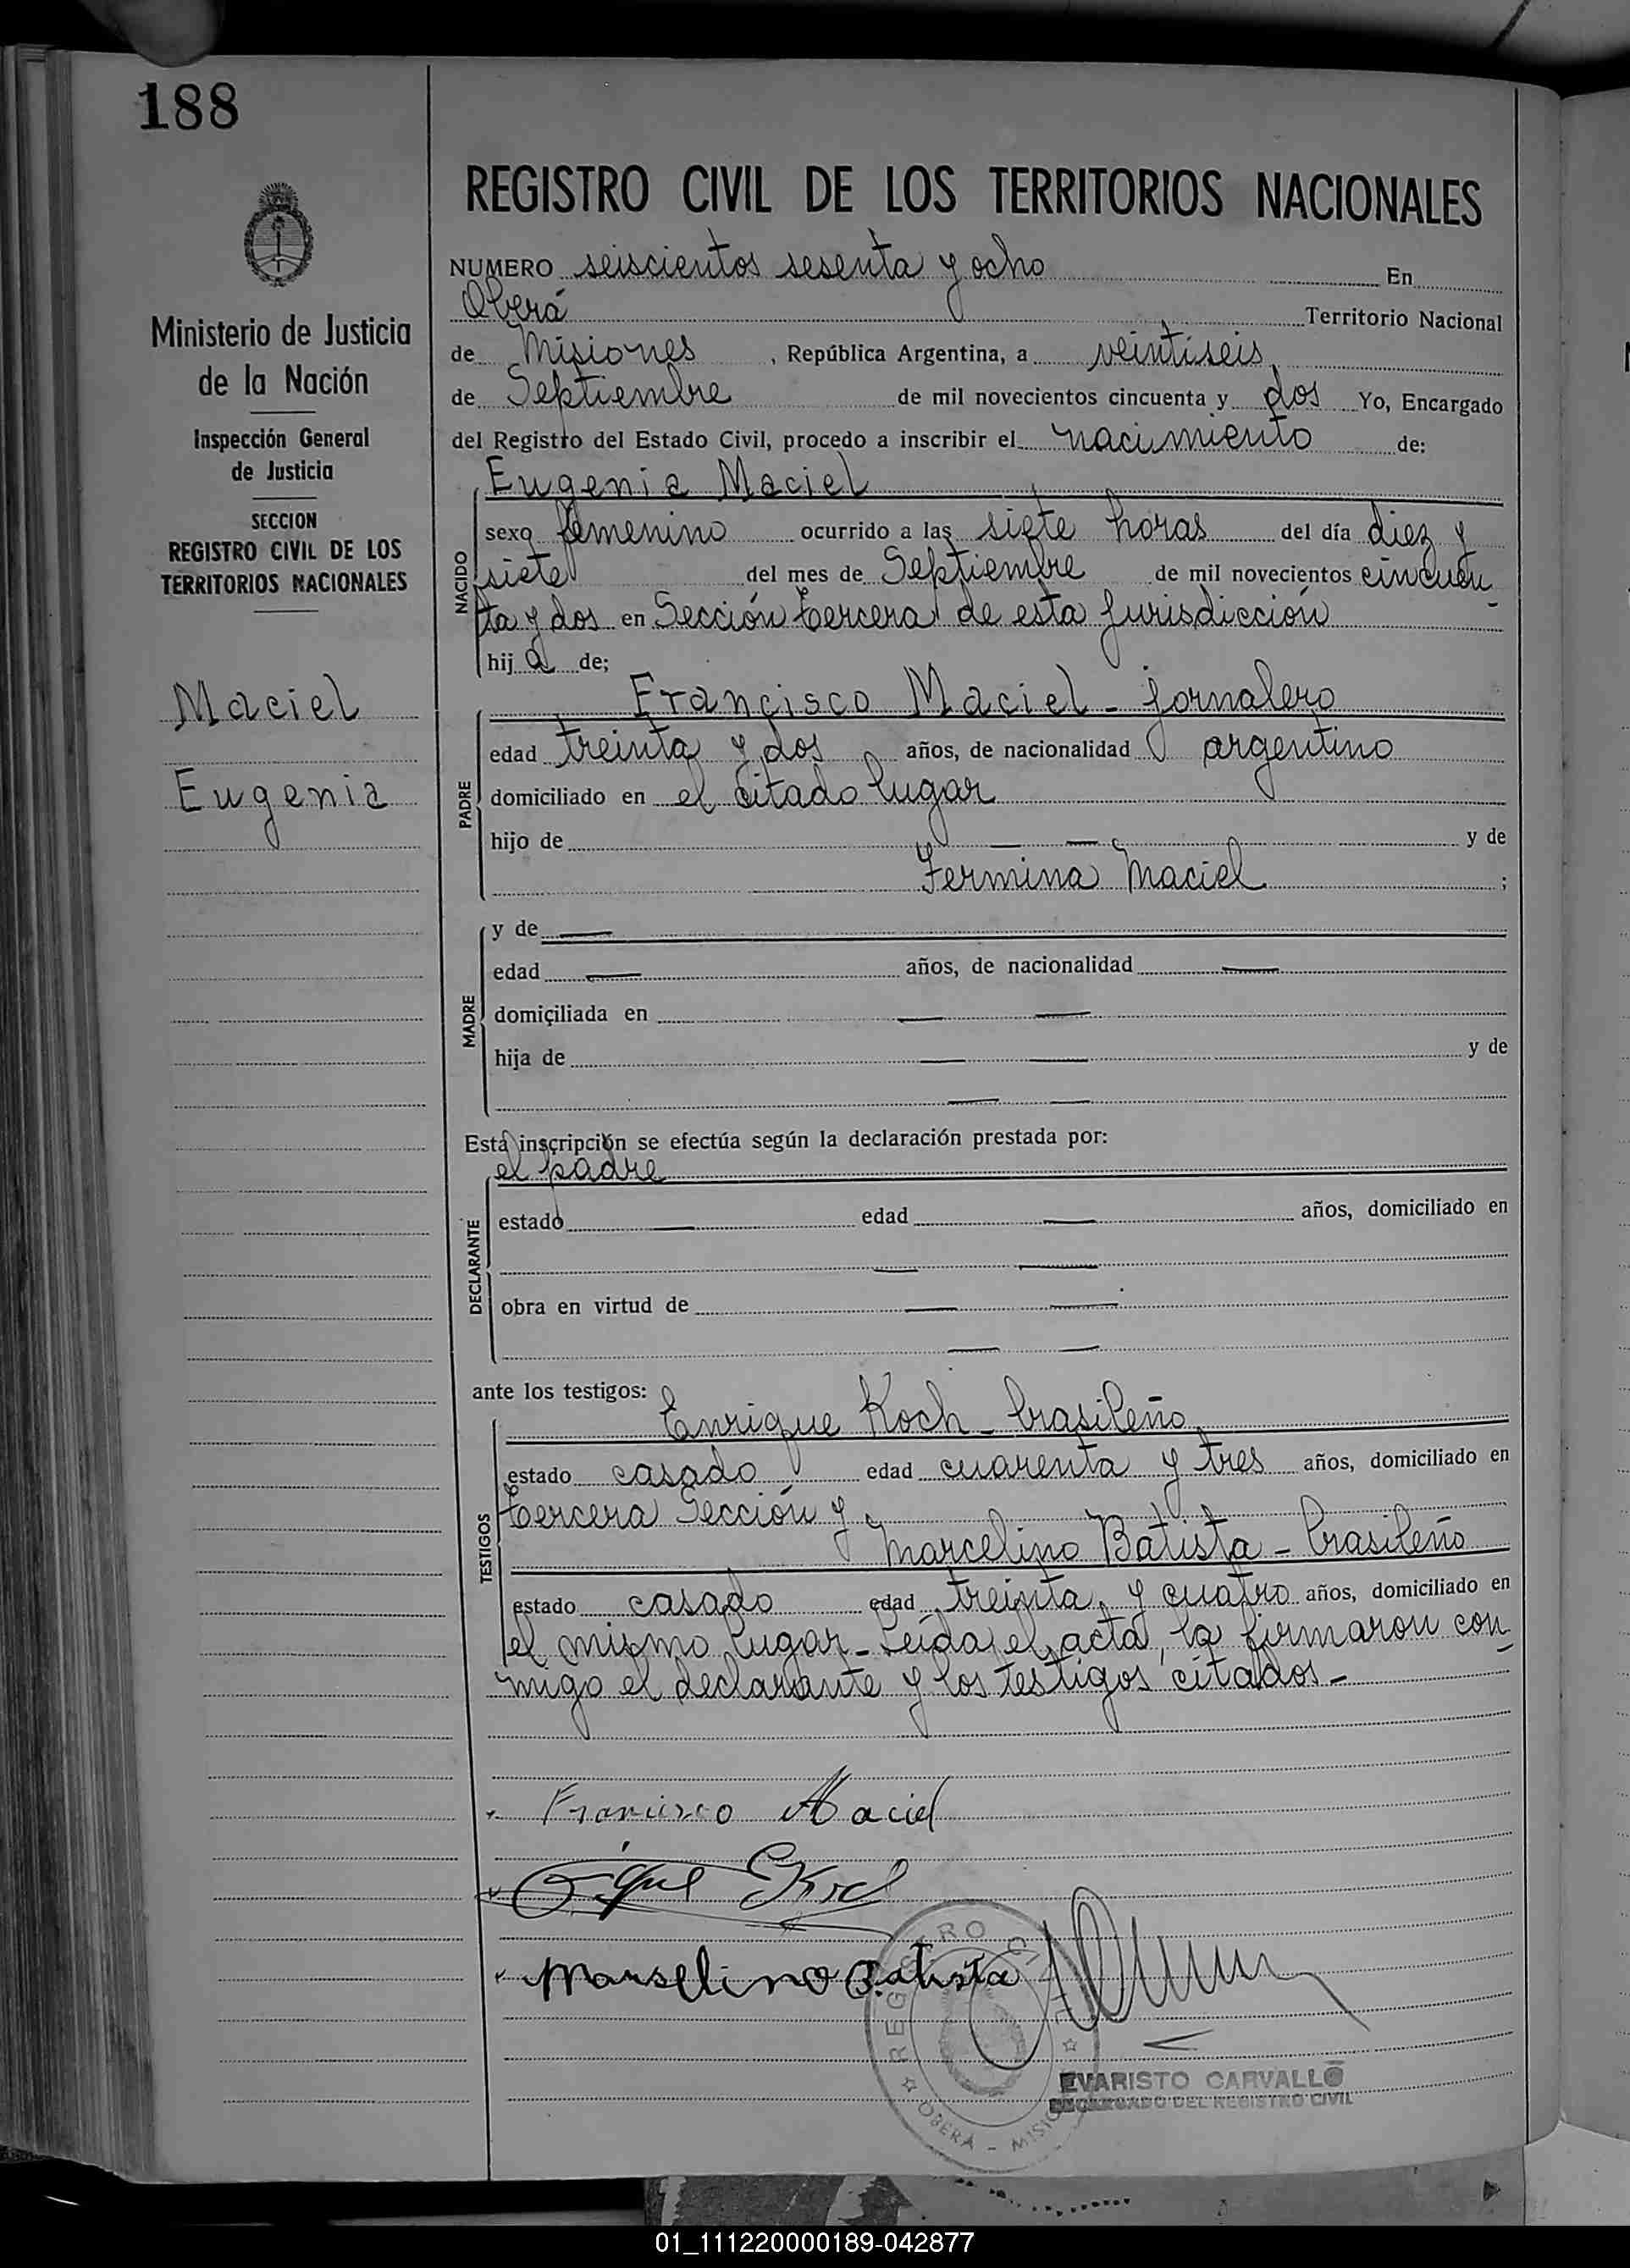 188
Ministerio de Justicia
de la Nación
Inspección General
de Justicia
SECCION
REGISTRO CIVIL DE LOS
TERRITORIOS NACIONALES
Maciel
Eugenia
REGISTRO CIVIL DE LOS TERRITORIOS NACIONALES
NUMERO seiscientos sesenta y ocho En
Oberá Territorio Nacional
de Misiones, República Argentina, a veintiseis
de Septiembre de mil novecientos cincuenta y dos Yo, Encargado
del Registro del Estado Civil, procedo a inscribir el nacimiento de:
Eugenia Maciel
NACIDO
sexo femenino ocurrido a las siete horas del día diez y
siete del mes de Septiembre de mil novecientos cincuen
ta y dos en Sección tercera de esta Jurisdicción
hij a de;
Francisco Maciel - jornalero
PADRE
edad treinta y dos años, de nacionalidad argentino
domiciliado en el citado lugar
hijo de — — y de
Fermina Maciel ;
MADRE
y de —
edad — años, de nacionalidad —
domiciliada en — —
hija de — — y de
— —
Esta inscripción se efectúa según la declaración prestada por:
el padre
DECLARANTE
estado — edad — años, domiciliado en
— —
obra en virtud de — —
— —
ante los testigos:
Enrique Koch - brasileño
TESTIGOS
estado casado edad cuarenta y tres años, domiciliado en
tercera Sección y
Marcelino Batista - brasileño
estado casado edad treinta y cuatro años, domiciliado en
el mismo lugar - Leída el acta, la firmaron con
migo el declarante y los testigos citados -
Francisco Maciel
Marselino Batista
REGISTRO CIVIL
OBERÁ - MISIONES
EVARISTO CARVALLO
ENCARGADO DEL REGISTRO CIVIL
01_111220000189-042877